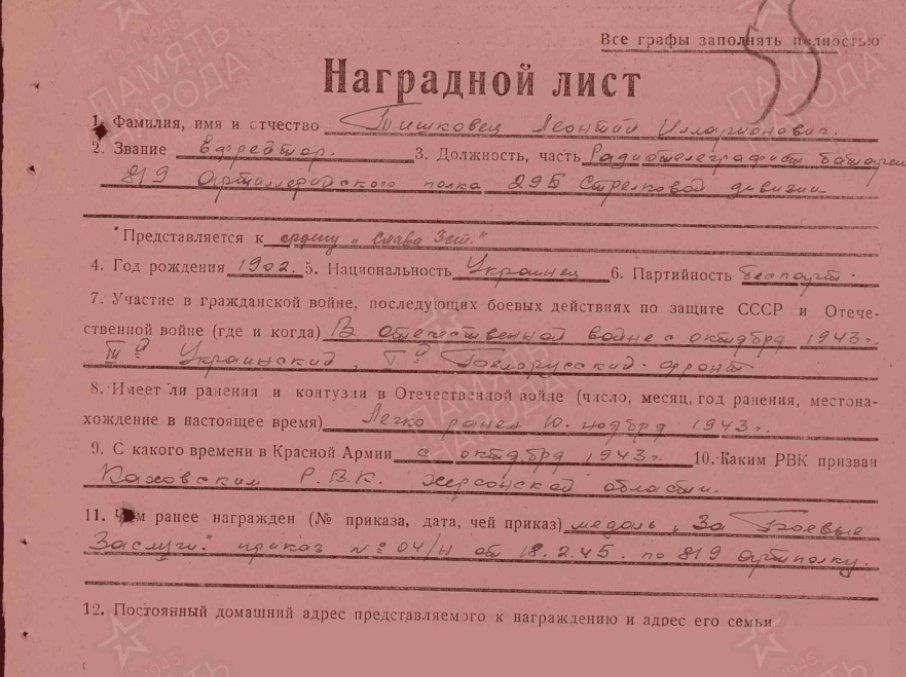 Все графы заполнять полностью
Наградной лист
1. Фамилия, имя и отчество Тишковец Леонтий Илларионович.
2. Звание Ефрейтор. 3. Должность, часть Радиотелеграфист батареи
819 Артиллерийского полка 295 Стрелковой дивизии
Представляется к ордену „Слава 3 ст."
4. Год рождения 1902. 5. Национальность Украинец 6. Партийность беспарт.
7. Участие в гражданской войне, последующих боевых действиях по защите СССР и Отече-
ственной войне (где и когда) В отечественной войне с октября 1943 г.
Украинский, Белорусский фронт
8. Имеет ли ранения и контузии в Отечественной войне (число, месяц, год ранения, местона-
хождение в настоящее время) Легко ранен 10. ноября 1943 г.
9. С какого времени в Красной Армии с октября 1943 г. 10. Каким РВК призван
Каховским Р.В.К. Херсонской области.
11. Чем ранее награжден (№ приказа, дата, чей приказ) медаль „За Боевые
Заслуги." приказ № 04/н от 18.2.45. по 819 артполку.
12. Постоянный домашний адрес представляемого к награждению и адрес его семьи
ПАМЯТЬ НАРОДА
1945